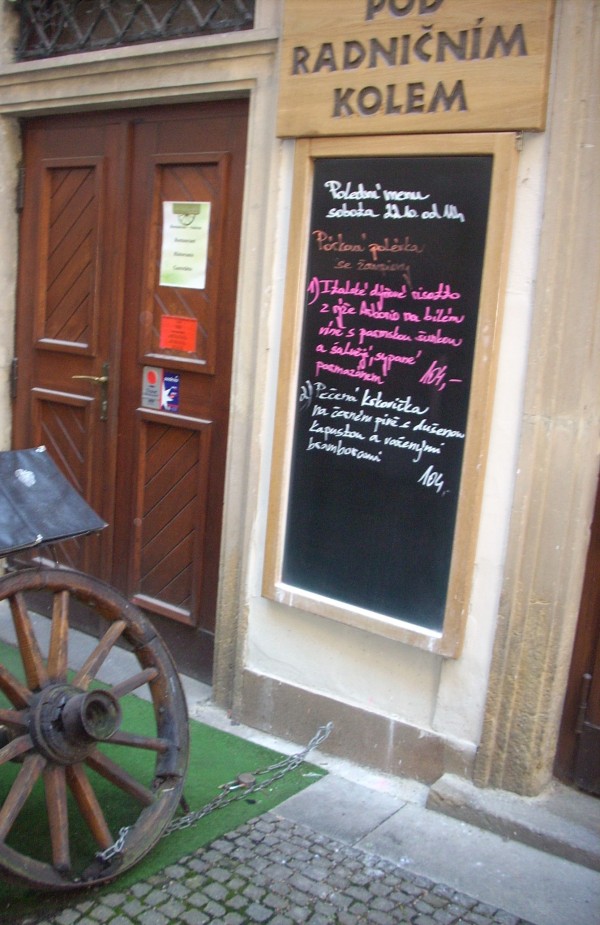 POD
RADNIČNÍM
KOLEM
Polední menu
sobota 22.10. od 11h
Pórková polévka
se žampiony
1) Italské dýňové risotto
z rýže Arborio na bílém
víně s parmskou šunkou
a šalvějí, sypané
parmazánem 164,-
2) Pečená krkovička
na černém pivě s dušenou
kapustou a vařenými
bramborami
104,-